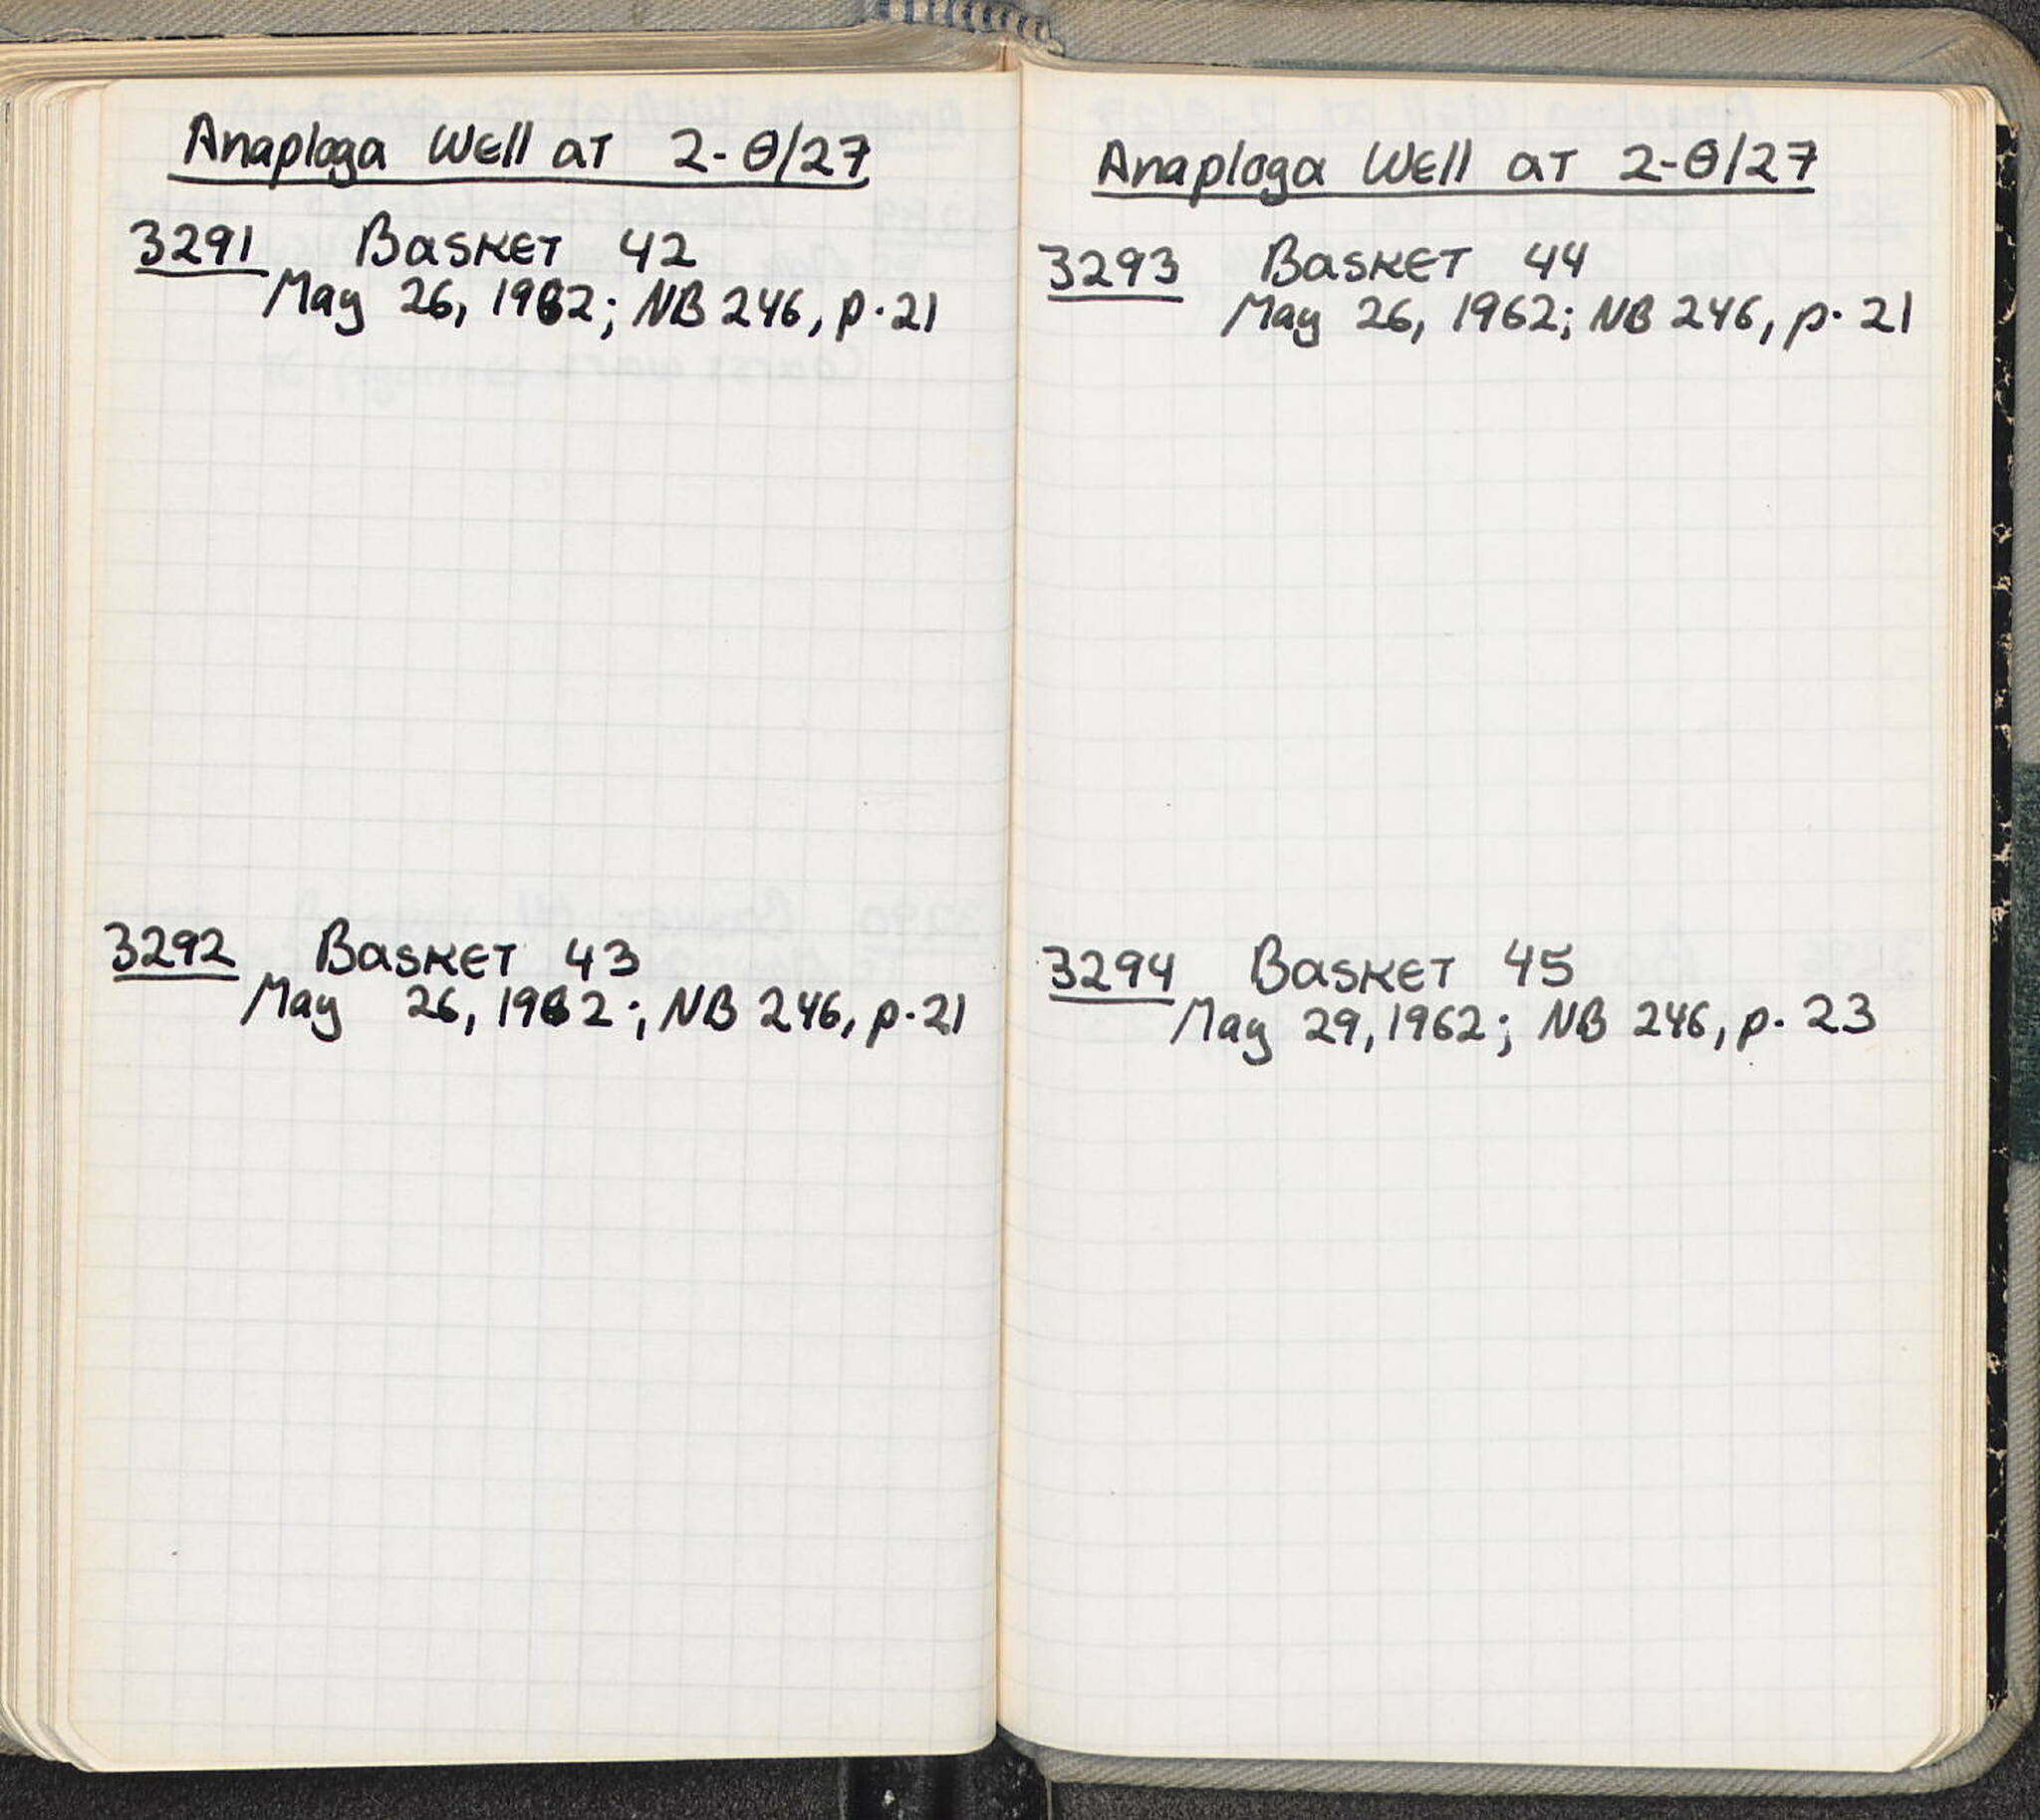 Anaploga Well at 2-Θ/27
3291 Basket 42
May 26, 1962; NB 246, p. 21
3292 Basket 43
May 26, 1962; NB 246, p. 21
Anaploga Well at 2-Θ/27
3293 Basket 44
May 26, 1962; NB 246, p. 21
3294 Basket 45
May 29, 1962; NB 246, p. 23